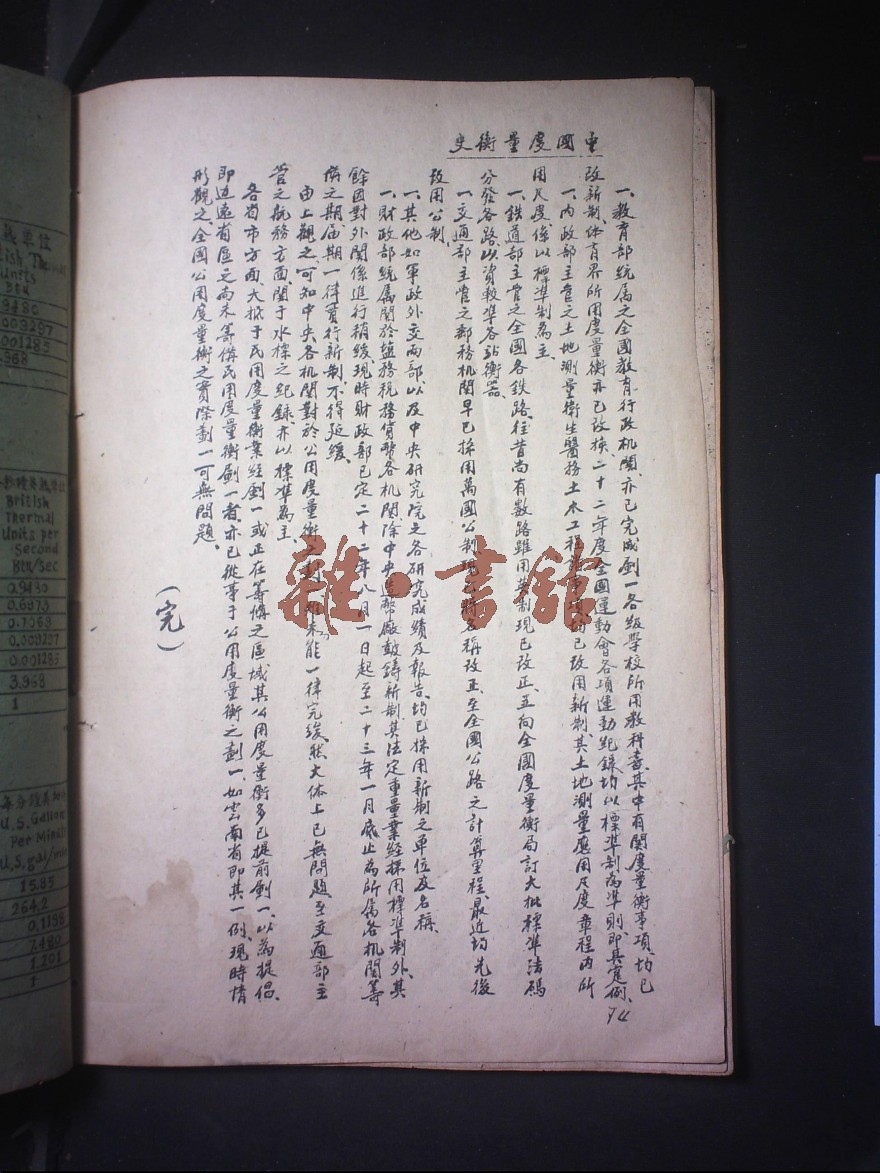 中國度量衡史
一、教育部統属之全國教育行政机関、亦已完成劃一各級學校所用教科書、其中有関度量衡事項、均已
改新制、体育界所用度量衡亦已改換、二十二年度全國運動會各項運動紀錄、均以標準制為準則、即其寔例、
一、内政部主管之土地測量衛生醫務土木工程 已改用新制、其土地測量應用尺度章程内所
用尺度係以標準制為主、
一、鉄道部主管之全國各鉄路、往昔尚有數路雖用英制現已改正、並向全國度量衡局訂大批標準法碼
分發各路、以資較準各站衡器、
一、交通部主管之郵務机関早已採用萬國公制、現已將名稱改正、至全國公路之計算里程、最近均先後
改用公制、
一、其他如軍政外交兩部、以及中央研究院之各研究成績及報告、均已採用新制之單位及名稱、
一、財政部統属関於塩務税務貨幣各机関除中央造幣廠鼓鋳新制、其法定重量業経採用標準制外、其
餘因對外関係進行稍緩、現時財政部已定二十二年八月一日起至二十三年一月底止為所属各机関籌
備之期、届期一律實行新制、不得延緩、
由上觀之、可知中央各机関對於公用度量衡之劃 雖未能一律完竣、然大体上已無問題、至交通部主
管之航務方面、関于水標之紀錄、亦以標準為主、
各省市方面、大抵于民用度量衡業経劃一或正在籌備之區域、其公用度量衡多已提前劃一、以為提倡、
即边遠省區之尚未籌備民用度量衡劃一者、亦已從事于公用度量衡之劃一、如雲南省即其一例、現時情
形觀之、全國公用度量衡之實際劃一可無問題、
（完）
雜·書館
British
Thermal
Units per
Second
Btu/Sec
0.9480
0.6973
0.009297
0.001285
3.968
1
U.S. Gallon
Per Minute
U.S. gal/min
15.85
264.2
7.480
1.201
1